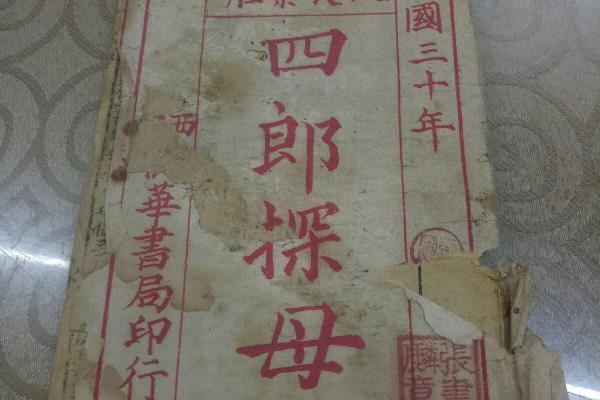 國三十年
四郎探母
西
華書局印行
張書